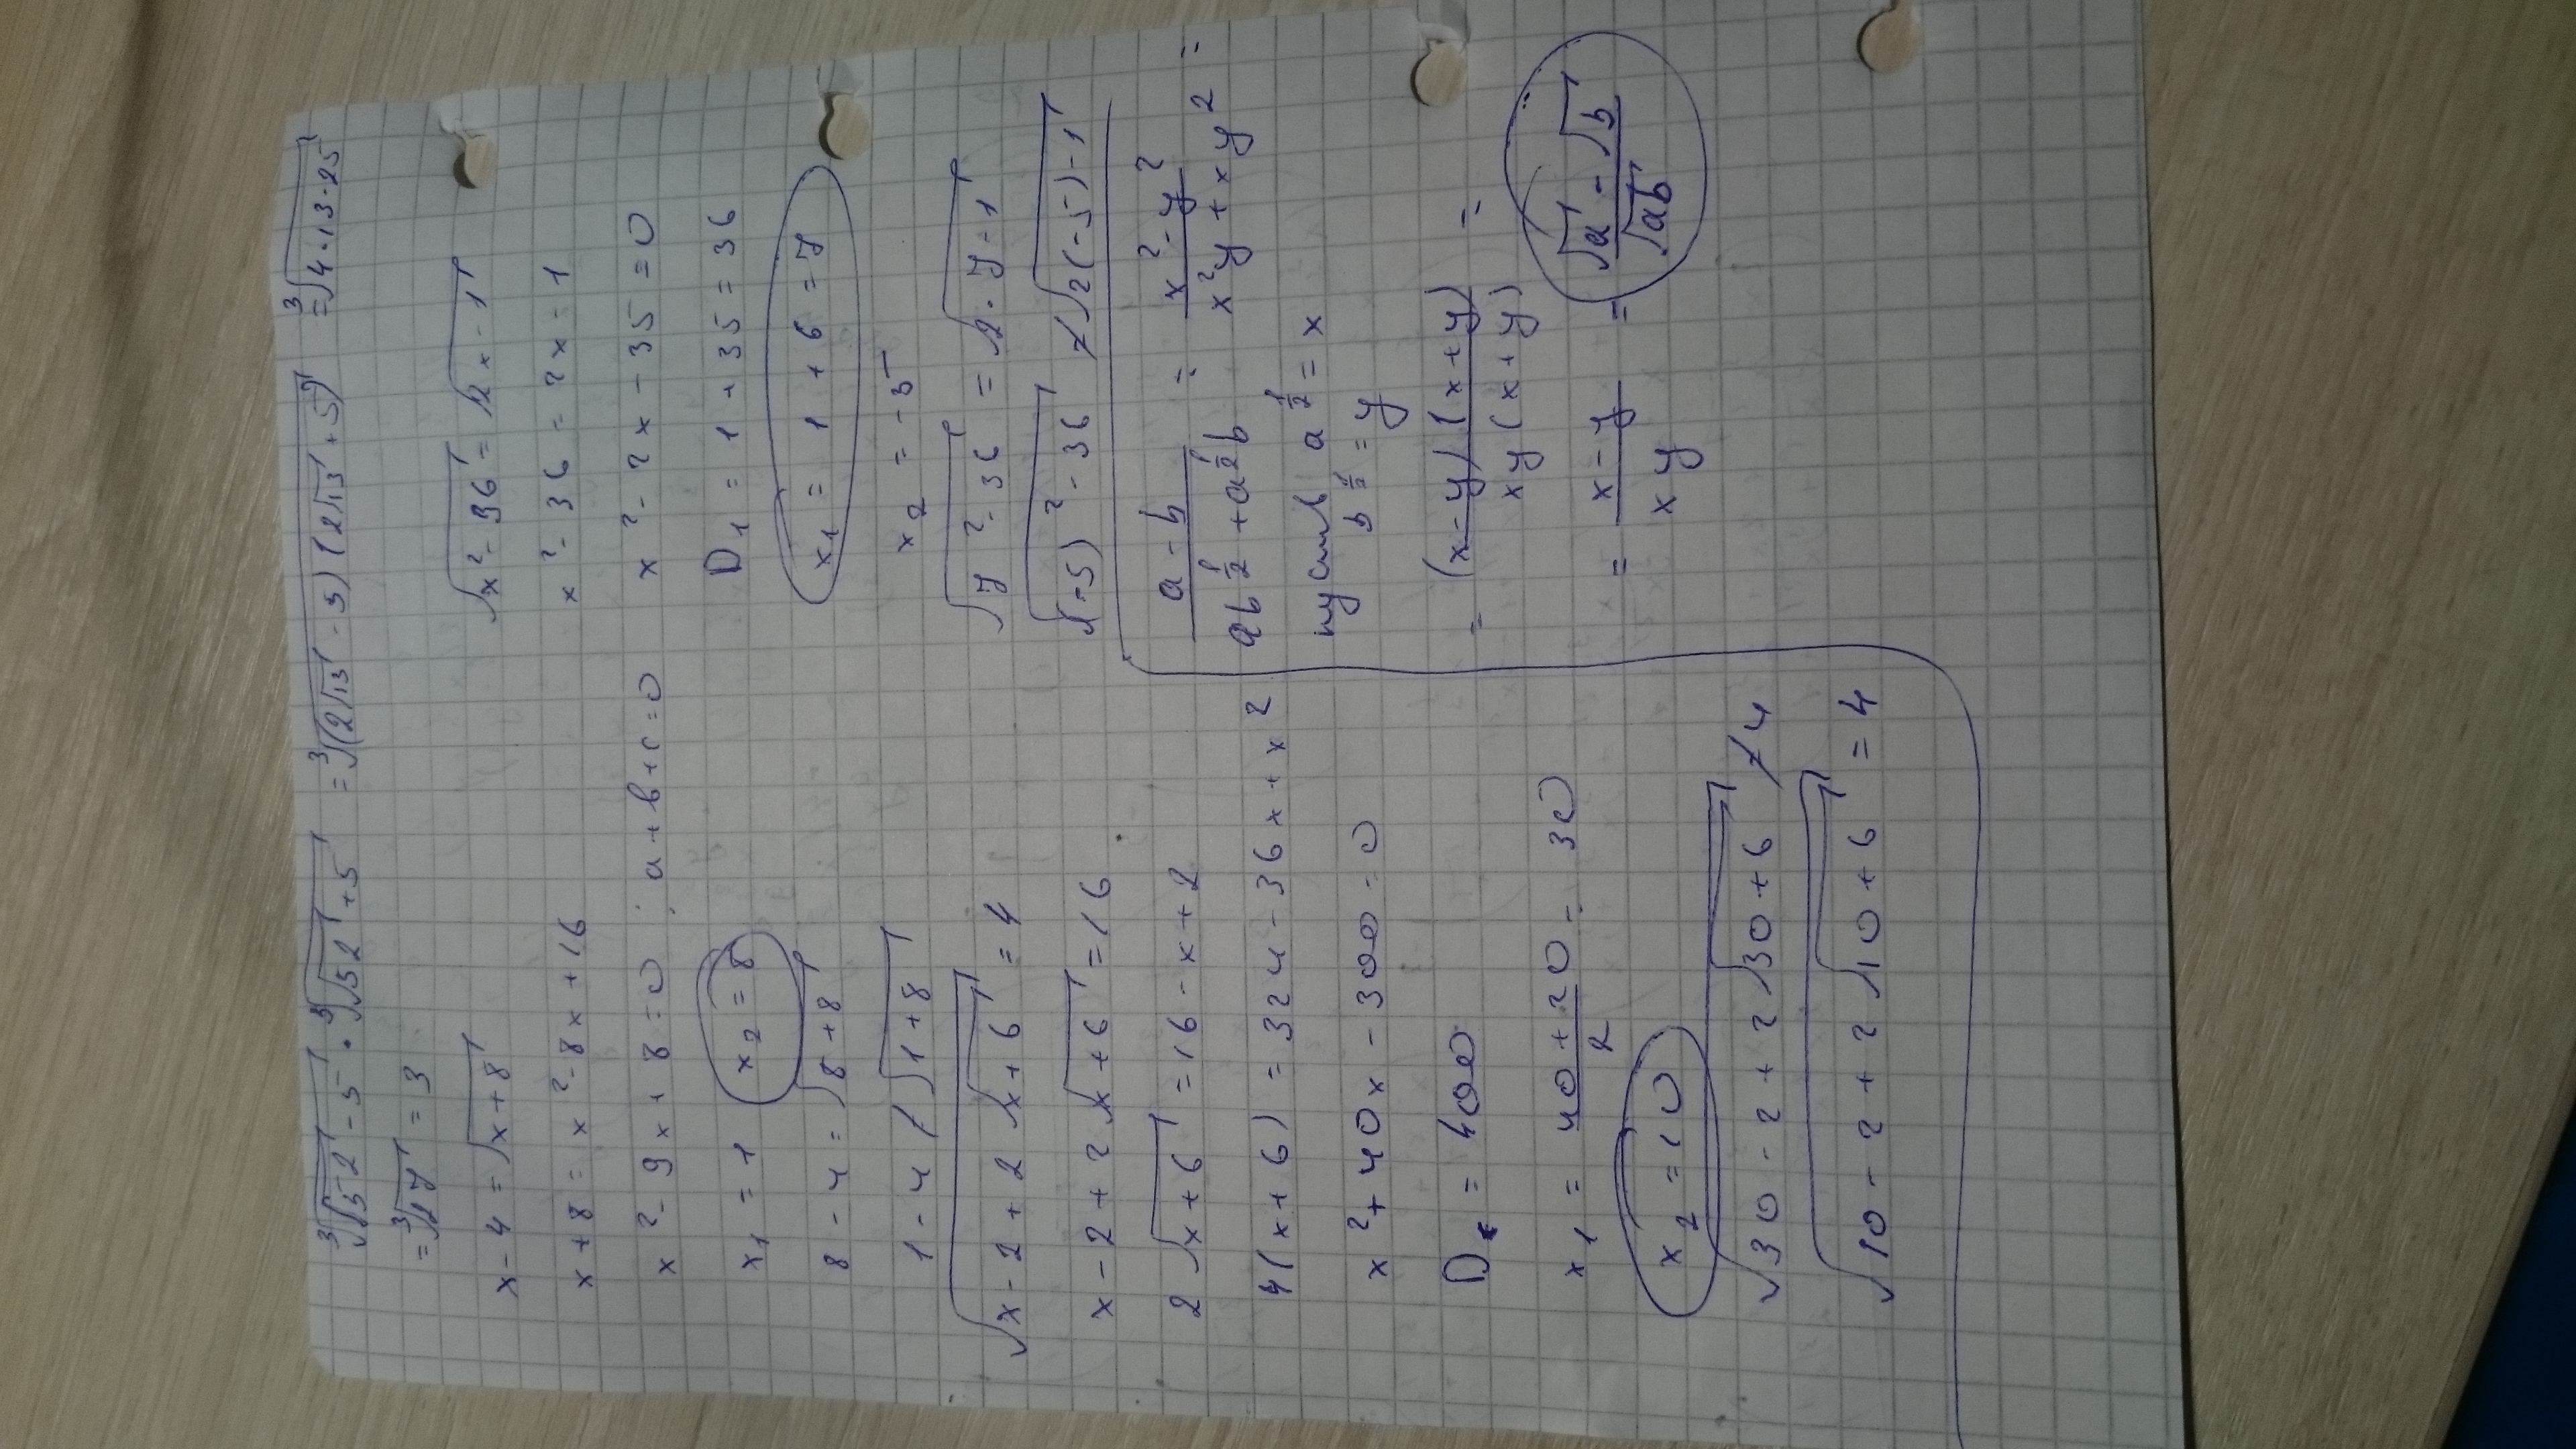 ∛(√52 - 5) · ∛(√52 + 5) = ∛((2√13 - 5)(2√13 + 5)) = ∛(4·13-25)
= ∛27 = 3
x - 4 = √(x + 8)
x + 8 = x² - 8x + 16
x² - 9x + 8 = 0 ; a + b + c = 0
x₁ = 1 x₂ = 8
8 - 4 = √(8 + 8)
1 - 4 ≠ √(1 + 8)
√(x - 2 + 2√(x + 6)) = 4
x - 2 + 2√(x + 6) = 16
2√(x + 6) = 16 - x + 2
4(x + 6) = 324 - 36x + x²
x² + 40x - 300 = 0
D = 400
x₁ = (40 + 20)/2 = 30
x₂ = 10
√(30 - 2 + 2√(30 + 6)) ≠ 4
√(10 - 2 + 2√(10 + 6)) = 4
√(x² - 36) = √(2x - 1)
x² - 36 = 2x - 1
x² - 2x - 35 = 0
D₁ = 1 + 35 = 36
x₁ = 1 + 6 = 7
x₂ = -5
√(7² - 36) = √(2·7 - 1)
√((-5)² - 36) ≠ √(2(-5) - 1)
(a - b)/(ab^½ + a^½b) = (x² - y²)/(x²y + xy²) =
пусть a^½ = x
b^½ = y
= (x - y)(x + y)/(xy(x + y)) =
= (x - y)/(xy) = (√a - √b)/√ab